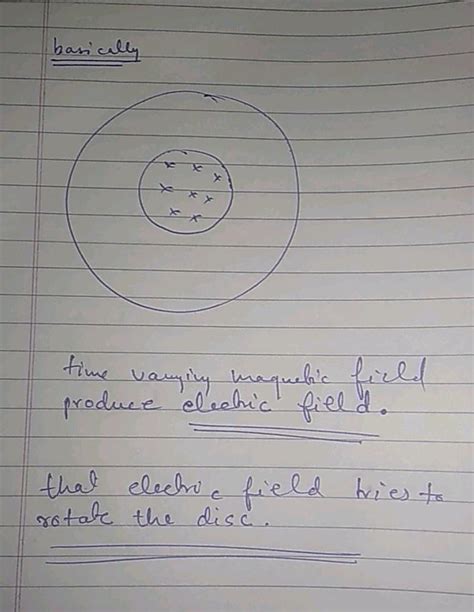 basically
time varying magnetic field
produce electric field.
that electric field tries to
rotate the disc.